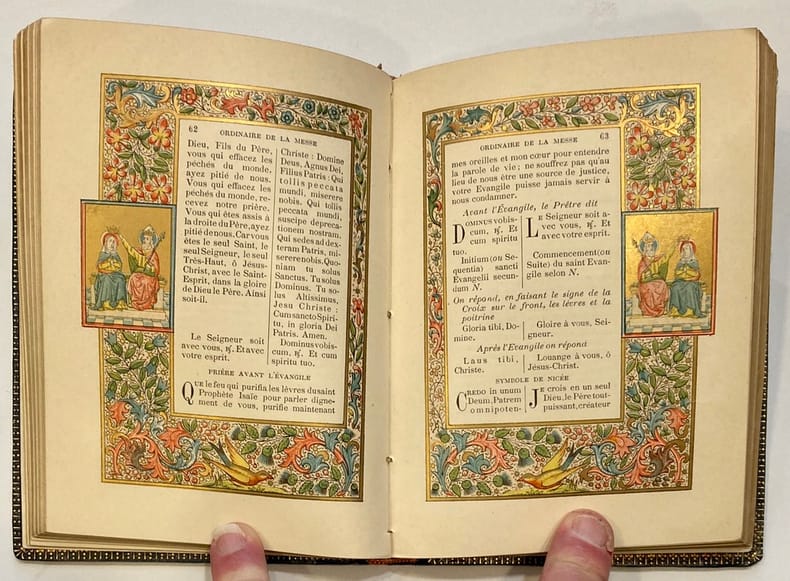 62
ORDINAIRE DE LA MESSE
Dieu, Fils du Père,
vous qui effacez les
péchés du monde,
ayez pitié de nous.
Vous qui effacez les
péchés du monde, re-
cevez notre prière.
Vous qui êtes assis à
la droite du Père, ayez
pitié de nous. Car vous
êtes le seul Saint, le
seul Seigneur, le seul
Très-Haut, ô Jésus-
Christ, avec le Saint-
Esprit, dans la gloire
de Dieu le Père. Ainsi
soit-il.
Le Seigneur soit
avec vous, ℟. Et avec
votre esprit.
Christe : Domine
Deus, Agnus Dei,
Filius Patris : Qui
tollis peccata
mundi, miserere
nobis. Qui tollis
peccata mundi,
suscipe depreca-
tionem nostram.
Qui sedes ad dex-
teram Patris, mi-
serere nobis. Quo-
niam tu solus
Sanctus. Tu solus
Dominus. Tu so-
lus Altissimus,
Jesu Christe :
Cum sancto Spiri-
tu, in gloria Dei
Patris. Amen.
Dominus vobis-
cum, ℟. Et cum
spiritu tuo.
PRIÈRE AVANT L'ÉVANGILE
Que le feu qui purifia les lèvres du saint
Prophète Isaïe pour parler digne-
ment de vous, purifie maintenant
ORDINAIRE DE LA MESSE
63
mes oreilles et mon cœur pour entendre
la parole de vie ; ne souffrez pas qu'au
lieu de nous être une source de justice,
votre Evangile puisse jamais servir à
nous condamner.
Avant l'Évangile, le Prêtre dit
Dominus vobis-
cum, ℟. Et
cum spiritu
tuo.
Initium (ou Se-
quentia) sancti
Evangelii secun-
dum N.
Le Seigneur soit a-
vec vous, ℟. Et
avec votre esprit.
Commencement (ou
Suite) du saint Evan-
gile selon N.
On répond, en faisant le signe de la
Croix sur le front, les lèvres et la
poitrine
Gloria tibi, Do-
mine.
Gloire à vous, Sei-
gneur.
Après l'Evangile on répond
Laus tibi,
Christe.
Louange à vous, ô
Jésus-Christ.
SYMBOLE DE NICÉE
Credo in unum
Deum, Patrem
omnipoten-
Je crois en un seul
Dieu, le Père tout-
puissant, créateur